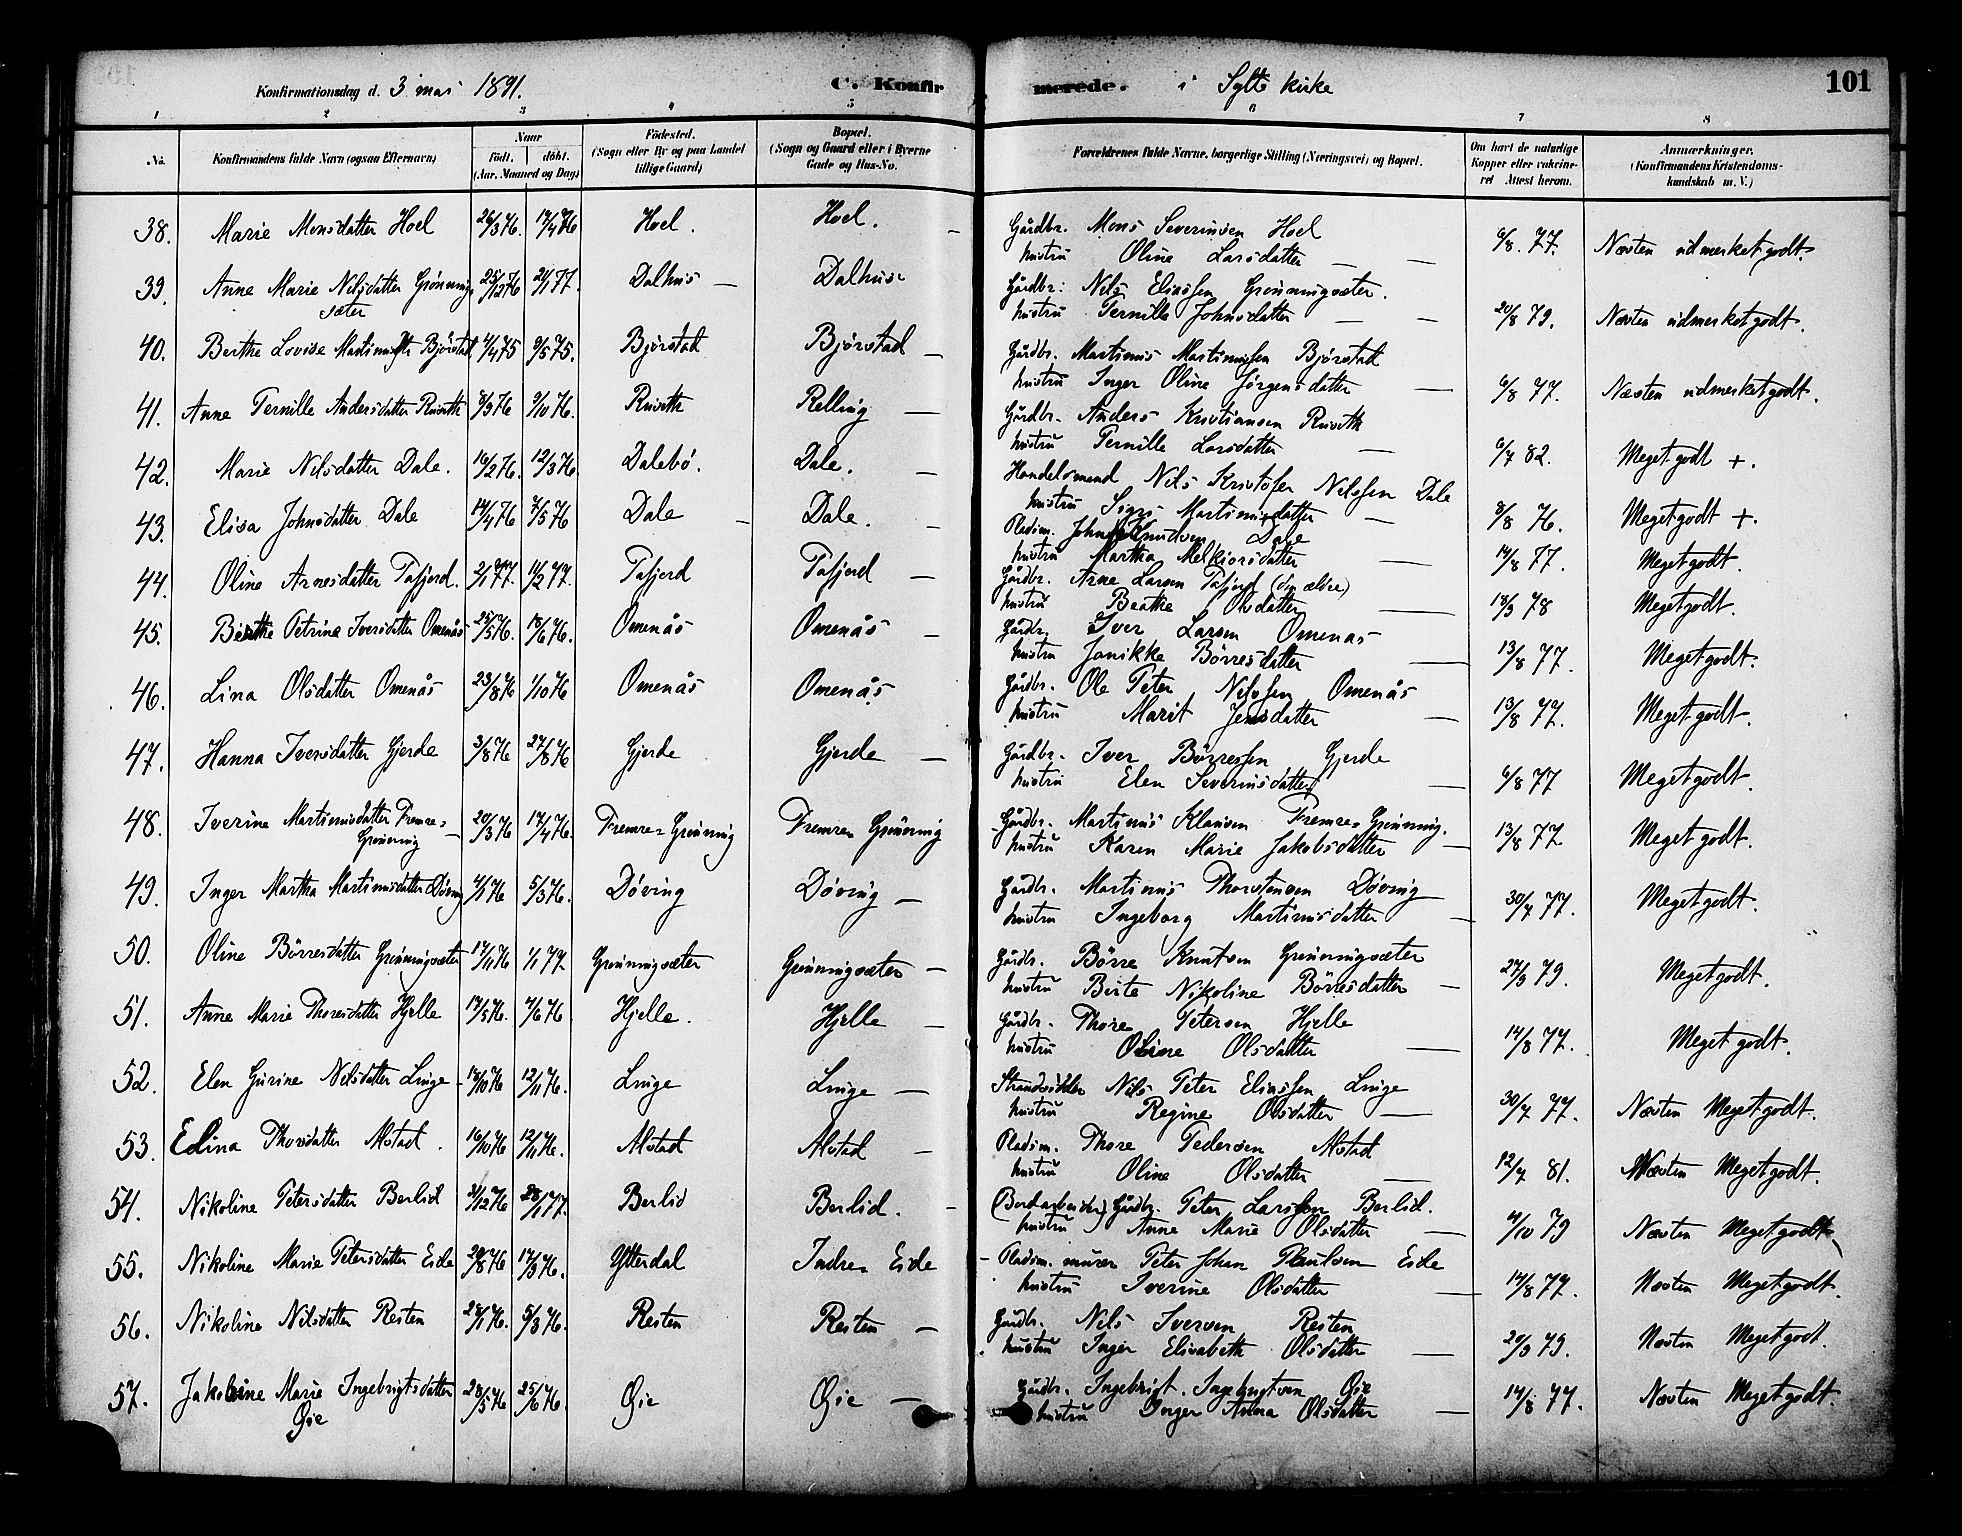 Konfirmationsdag d. 3 mai 1891. C. Konfir merede. i Sylte kirke 101
1 2 3 4 5 6 7 8
No. Konfirmandens fulde Navn (ogsaa Efternavn) Naar født. døbt. (Aar, Maaned og Dag) Fødested. (Sogn eller By og paa Landet tillige Gaard) Bopæl. (Sogn og Gaard eller i Byerne Gade og Hus-No. Forældrenes fulde Navne, borgerlige Stilling (Næringsvei) og Bopæl. Om havt de naturlige Kopper eller vakcineret Attest herom. Anmærkninger. (Konfirmandens Kristendomskundskab m. V.)
38. Marie Monsdatter Hoel 26/3 76. 17/4 76 Hoel. Hoel. Gårdbr. Mons Severinsen Hoel
hustru Oline Larsdatter 6/8. 77. Næsten udmerket godt.
39. Anne Marie Nilsdatter Grønning- 25/12 76 21/1 77. Dalhus Dalhus Gårdbr: Nils Eliassen Grønningsæter.
sæter hustru Pernille Johnsdatter 20/8 79. Næsten udmerket godt.
40. Berthe Lovise Martinusdtr Bjørstad 4/4 75 9/5 75. Bjørstad Bjørstad Gårdbr. Martinus Martinussen Bjørstad
hustru Inger Oline Jørgensdatter 6/8 77. Næsten udmerket godt.
41. Anne Pernille Andersdatter Ruseth 8/9 76 9/10 76. Ruseth Relling Gårdbr. Anders Kristiansen Ruseth
hustru Pernille Larsdatter 6/7 82. Meget godt +.
42. Marie Nilsdatter Dale. 16/2 76. 12/3 76 Dalebø. Dale. Handelsmand Nils Kristofer Nilssen Dale
hustru Signe Martinusdatter 8/8 76. Meget godt +.
43. Elisa Johnsdatter Dale 14/4 76 7/5 76 Dale Dale. Pladsm. John Knudsen Dale
hustru Martha Melkiorsdatter 14/8 77. Meget godt.
44. Oline Arnesdatter Tafjord. 2/1 77. 11/2 77. Tafjord Tafjord Gårdbr. Arne Larsen Tafjord (den ældre)
hustru Berthe Olsdatter 18/9 78 Meget godt.
45. Berthe Petrina Iversdatter Omenås 25/5 76. 18/6 76. Omenås Omenås Gårdbr. Iver Larsen Omenas
hustru Janikke Børresdatter 13/8 77. Meget godt.
46. Lina Olsdatter Omenås 23/8 76 1/10 76 Omenås Omenås Gårdbr. Ole Peter Nilssen Omenås
hustru Marit Jensdatter 13/8 77. Meget godt.
47. Hanna Iversdatter Gjerde 3/8 76 27/8 76 Gjerde Gjerde Gårdbr. Iver Børressen Gjerde
hustru Elen Severinsdatter 6/8 77 Meget godt.
48. Iverine Martinusdatter Fremre= 20/3 76 17/4 76. Fremre Grønning Fremre Grønning Gårdbr. Martinus Klausen Fremre Grønning.
Grønning hustru Karen Marie Jakobsdatter 13/8 77 Meget godt.
49. Inger Martha Martinusdatter Døving 4/1 76 5/3 76. Døving Døving Gårdbr. Martinus Thorstensen Døving
hustru Ingeborg Martinusdatter 30/7 77. Meget godt.
50. Oline Børresdatter Grønningsæter 17/11 76 1/1 77. Grønningsæter Grønningsæter Gårdbr. Børre Knutsen Grønningsæter
hustru Berte Nikoline Børresdatter 27/9 79. Meget godt.
51. Anne Marie Thoresdatter Hjelle 17/5 76. 4/6 76 Hjelle. Hjelle Gårdbr. Thore Petersen Hjelle
hustru Oline Olsdatter 14/8 77. Meget godt.
52. Elen Gurine Nilsdatter Linge 18/10 76 12/11 76. Linge Linge Strandsidder Nils Peter Eliassen Linge
hustru Regine Olsdatter 30/7 77. Næsten Meget godt.
53. Edina Thorsdatter Alstad. 16/10 76 12/11 76. Alstad Alstad Pladsm. Thore Pedersen Alstad
hustru Oline Olsdatter 12/7 81. Næsten Meget godt.
54. Nikoline Petersdatter Berlid 31/12 76 28/1 77. Berlid Berlid. Gårdbr. Peter Larssen Berlid.
hustru Anne Marie Olsdatter 4/10 79 Næsten Meget godt
55. Nikoline Marie Petersdatter Eide 20/8 76 17/9 76. Ytterdal Indre Eide Pladsm. murer Peter Johan Paulsen Eide
hustru Iverine Olsdatter 14/8 77. Næsten Meget godt.
56. Nikoline Nilsdatter Resten 28/1 76. 5/3 76. Resten Resten Gårdbr. Nils Iversen Resten
hustru Inger Elisabeth Olsdatter 20/9 79. Næsten Meget godt.
57. Jakobine Marie Ingebrigtsdatter 28/5 76 25/6 76. Øie Øie Gårdbr. Ingebrigt Ingebrigtsen Øie
Øie hustru Inger Anna Olsdatter 14/8 77. Næsten Meget godt.